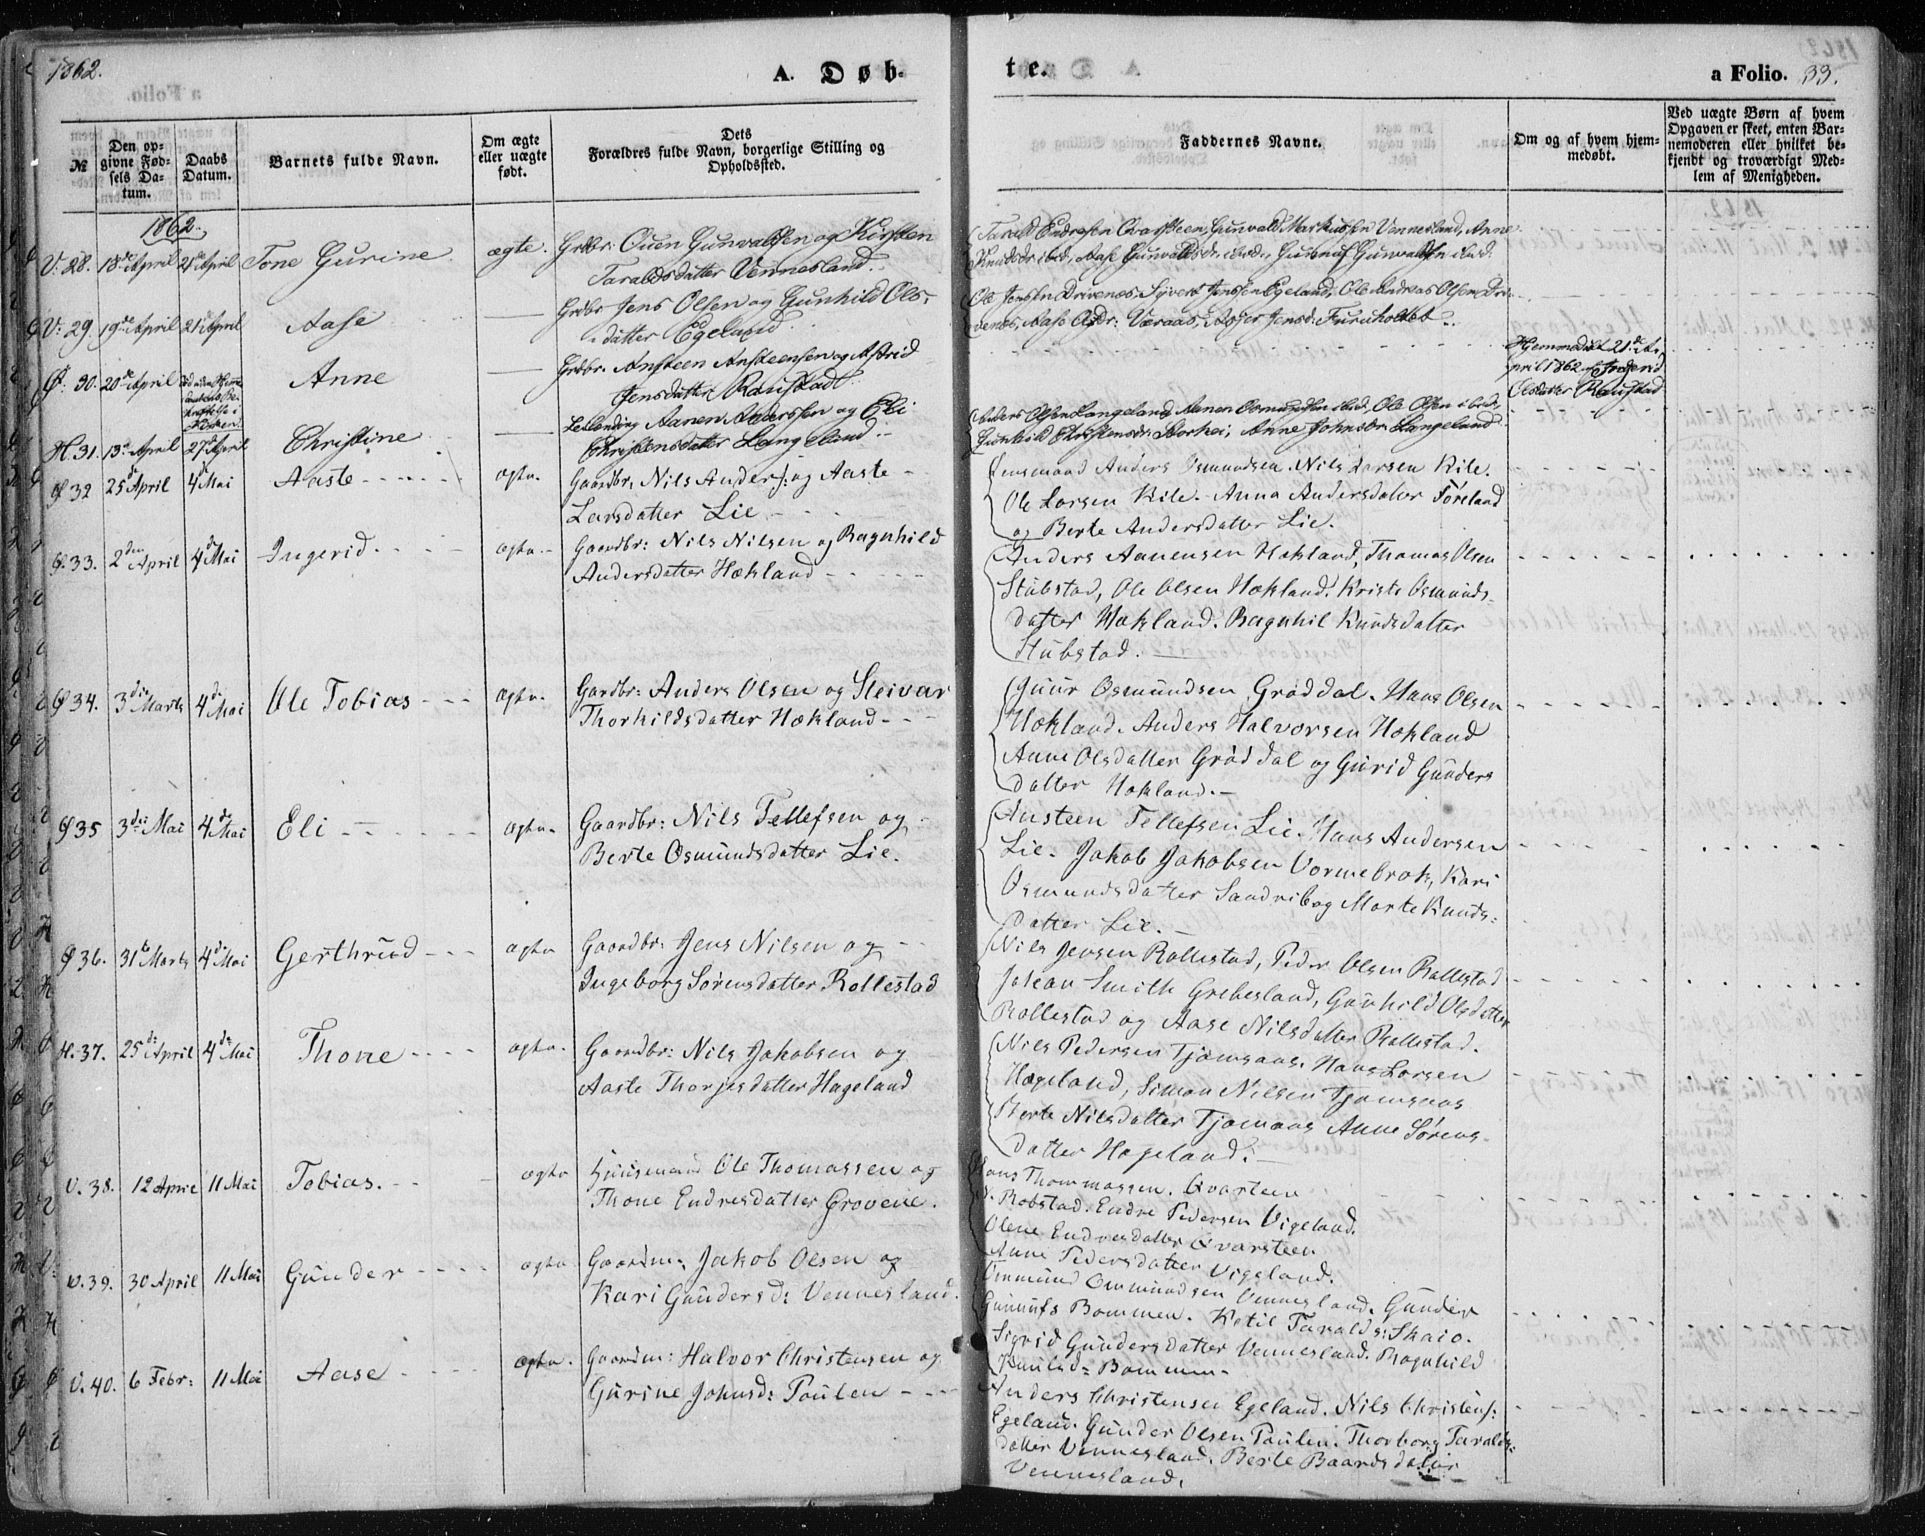 1862.
A. Døb-
te.
a Folio. 33.
№
Den op-
givne Fød-
sels Da-
tum.
Daabs
Datum.
Barnets fulde Navn.
Om ægte
eller uægte
født.
Dets
Forældres fulde Navn, borgerlige Stilling og
Opholdssted.
Faddernes Navne.
Om og af hvem hjem-
medøbt.
Ved uægte Børn af hvem
Opgaven er skeet, enten Bar-
nemoderen eller hvilket be-
kjendt og troværdigt Med-
lem af Menigheden.
1862.
V. 28. 18de April 21de April Tone Gurine ægte. Grdbr: Ouen Gunvaldsen og Kirsten
Taraldsdatter Vennesland.
Tarald Endresen Qvarsteen, Gunvald Markussen Vennesland, Anne
Knudsdr ibid, Aase Gunvaldsdr ibid., Gunuf Gunvaldsen ibid.
V: 29. 19de April 21de April Aase — Grdbr Jens Olsen og Gunhild Ols-
datter Egeland.
Ole Jensen Drivenes, Syvert Jenssen Egeland, Ole Andreas Olsen Dri-
venes, Aase Oldr: Væraas, Asger Jensd: Furuholtet.
Ø. 30. 20de April Anne — Grdbr. Ansteen Ansteensen og Astrid
Jensdatter Raustadt.
Hjemmedøbt 21de A-
pril 1862 af Ingerid
Olsdatter Raustad
H. 31. 13de April 27de April Christine — Leilending Aanen Andersen og Eli
Christensdatter Langeland.
Anders Olsen Langeland, Aanen Osmundsen ibid, Ole Olsen ibid,
Gunhild Christensdr: Storhei, Anne Johnsdr: Langeland.
Ø 32 25de April 4de Mai Aaste ægte. Gaardbr. Nils Anders: og Aaste
Larsdatter Lie
Huusmand Anders Osmundsen. Nils Larsen Kile.
Ole Larsen Kile. Anna Andersdatter Føreland
og Berte Andersdatter Lie.
Ø. 33. 2den April 4de Mai Ingerid. ægte. Gaardbr: Nils Nilsen og Ragnhild
Andersdatter Hækland
Anders Aanensen Hækland, Thomas Olsen
Stubstad, Ole Olsen Hækland. Kriste Osmunds-
datter Hækland. Ragnhil Knudsdatter
Stubstad.
Ø 34. 3die Marts 4de Mai Ole Tobias ægte. Gardbr: Anders Olsen og Steivar
Thorkildsdatter Hækland
Guur Osmundsen Grøddal. Hans Olsen
Hækland. Anders Halvorsen Hækland
Anne Olsdatter Grøddal og Gurid Gunders
datter Hækland.
Ø 35 3die Mai 4de Mai Eli ægte. Gaardbr: Nils Tellefsen og
Berte Osmundsdatter Lie.
Austeen Tellefsen Lie. Hans Andersen
Lie. Jakob Jakobsen Vormebrok, Kari
Osmundsdatter Sandrib og Marte Knuds-
datter Lie.
Ø 36. 31te Marts 4de Mai Gerthrud ægte Gaardbr: Jens Nilsen og
Ingeborg Sørensdatter Rollestad
Nils Jensen Rollestad, Peder Olsen Rollestad
Johan Smith Grebesland, Gunhild Olsdatter
Rollestad og Aase Nilsdatter Rollestad.
H. 37. 25de April 4de Mai Thone ægte. Gaardbr: Nils Jakobsen og
Aaste Thorjesdatter Hageland
Nils Pedersen Tjomsaas. Hans Larsen
Hægeland, Simon Nilsen Tjomsaas
Berte Nilsdatter Tjomaas Anne Sørens-
datter Hageland.
V. 38. 12 April 11 Mai Tobias. ægte Huusmand Ole Thomassen og
Thone Endresdatter Grovene.
Hans Thommassen. Qvarteen
Robstad. Endre Pedersen Vigeland.
Olene Endresdatter Qvarsteen
Anne Pedersdatter Vigeland.
V. 39. 30 April 11 Mai Gunder ægte Gaardm: Jakob Olsen og
Kari Gundersd: Vennesland.
Ommund Ommundsen Vennesland. Gunder
Gunufs Bommen. Ketil Taralds: Skaio.
Sigrid Gundersdatter Vennesland. Ragnhild
Bommen.
V. 40. 6 Febr: 11 Mai Aase ægte. Gaardm: Halvor Christensen og
Gurine Johnsd: Poulen
Anders Christensen Egeland. Nils Christens:
Egeland. Gunder Olsen Poulen. Thorborg Taralds-
datter Vennesland. Berte Baardsdatter
Vennesland.